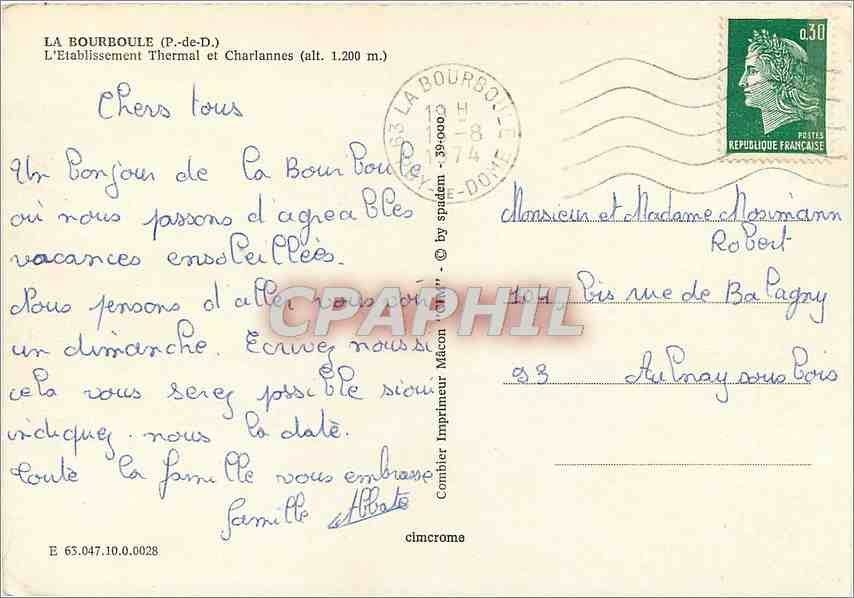 LA BOURBOULE (P.-de-D.)
L'Etablissement Thermal et Charlannes (alt. 1.200 m.)
Chers tous
Un bonjour de la Bourboule
où nous passons d'agreables
vacances ensoleillées.
Nous pensons d'aller vous voir
un dimanche. Ecrivez nous si
cela vous serez possible si oui
indiquez-nous la date.
Toute la famille vous embrasse
famille Abbate
E 63.047.10.0.0028
Combier Imprimeur Mâcon "CIM" - © by spadem - 39.000
cimcrome
63 LA BOURBOULE
19 H
-8
1974
PUY-DE-DOME
0,30
POSTES
REPUBLIQUE FRANÇAISE
Monsieur et Madame Mosimann
Robert
104 bis rue de Balagny
93 Aulnay sous bois
CPAPHIL